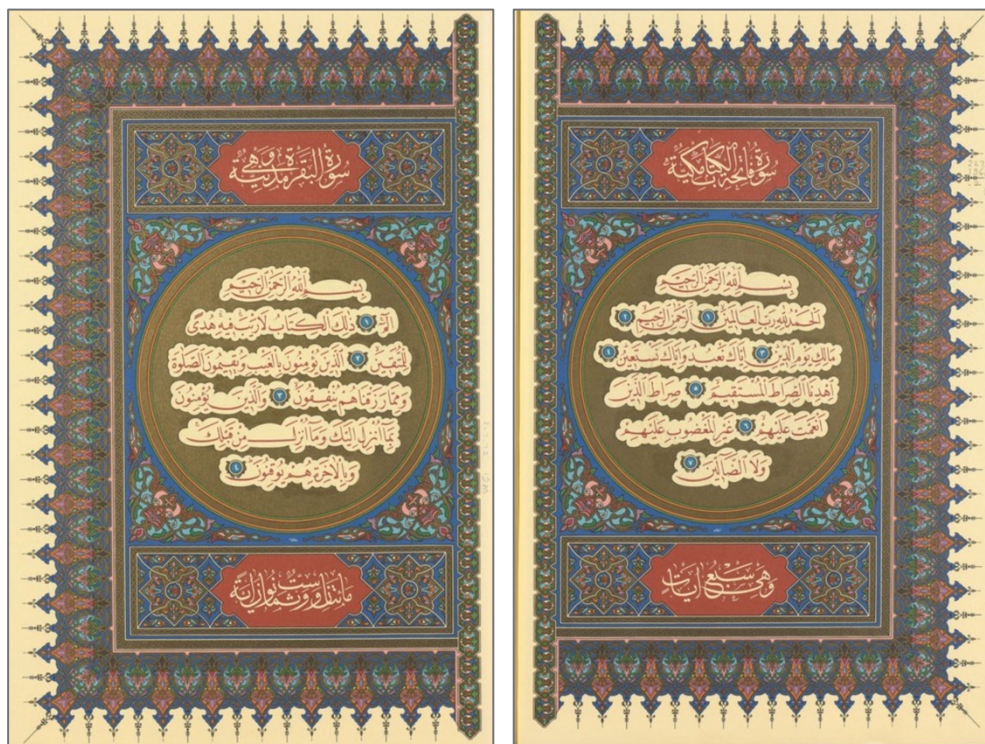 سورة فاتحة الكتاب مكية
بسم الله الرحمن الرحيم
الحمد لله رب العالمين ١ الرحمن الرحيم ٢
مالك يوم الدين ٣ إياك نعبد وإياك نستعين ٤
اهدنا الصراط المستقيم ٥ صراط الذين
أنعمت عليهم ٦ غير المغضوب عليهم
ولا الضالين ٧
وهي سبع آيات
سورة البقرة مدنية وهي
بسم الله الرحمن الرحيم
الم ١ ذلك الكتاب لا ريب فيه هدى
للمتقين ٢ الذين يؤمنون بالغيب ويقيمون الصلوة
ومما رزقناهم ينفقون ٣ والذين يؤمنون
بما أنزل إليك وما أنزل من قبلك
وبالآخرة هم يوقنون ٤
مائتان وست وثمانون آية